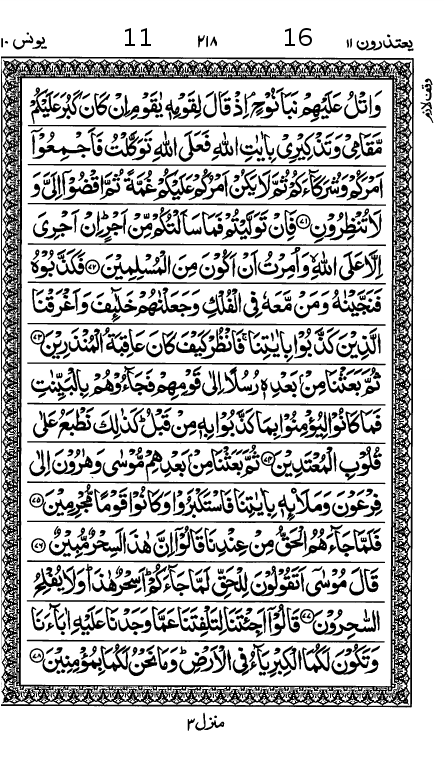 یعتذرون ۱۱ 16 ۲۱۸ 11 یونس ۱۰
وقف لازم
وَاتْلُ عَلَيْهِمْ نَبَاَ نُوْحٍ ۘ اِذْ قَالَ لِقَوْمِهٖ يٰقَوْمِ اِنْ كَانَ كَبُرَ عَلَيْكُمْ
مَّقَامِيْ وَتَذْكِيْرِيْ بِاٰيٰتِ اللّٰهِ فَعَلَى اللّٰهِ تَوَكَّلْتُ فَاَجْمِعُوْۤا
اَمْرَكُمْ وَشُرَكَآءَكُمْ ثُمَّ لَا يَكُنْ اَمْرُكُمْ عَلَيْكُمْ غُمَّةً ثُمَّ اقْضُوْۤا اِلَيَّ وَ
لَا تُنْظِرُوْنِ ﴿۷۱﴾ فَاِنْ تَوَلَّيْتُمْ فَمَا سَاَلْتُكُمْ مِّنْ اَجْرٍ ؕ اِنْ اَجْرِيَ
اِلَّا عَلَى اللّٰهِ ۙ وَاُمِرْتُ اَنْ اَكُوْنَ مِنَ الْمُسْلِمِيْنَ ﴿۷۲﴾ فَكَذَّبُوْهُ
فَنَجَّيْنٰهُ وَمَنْ مَّعَهٗ فِي الْفُلْكِ وَجَعَلْنٰهُمْ خَلٰٓئِفَ وَاَغْرَقْنَا
الَّذِيْنَ كَذَّبُوْا بِاٰيٰتِنَا ۚ فَانْظُرْ كَيْفَ كَانَ عَاقِبَةُ الْمُنْذَرِيْنَ ﴿۷۳﴾
ثُمَّ بَعَثْنَا مِنْۢ بَعْدِهٖ رُسُلًا اِلٰى قَوْمِهِمْ فَجَآءُوْهُمْ بِالْبَيِّنٰتِ
فَمَا كَانُوْا لِيُؤْمِنُوْا بِمَا كَذَّبُوْا بِهٖ مِنْ قَبْلُ ؕ كَذٰلِكَ نَطْبَعُ عَلٰى
قُلُوْبِ الْمُعْتَدِيْنَ ﴿۷۴﴾ ثُمَّ بَعَثْنَا مِنْۢ بَعْدِهِمْ مُّوْسٰى وَهٰرُوْنَ اِلٰى
فِرْعَوْنَ وَمَلَا۟ئِهٖ بِاٰيٰتِنَا فَاسْتَكْبَرُوْا وَكَانُوْا قَوْمًا مُّجْرِمِيْنَ ﴿۷۵﴾
فَلَمَّا جَآءَهُمُ الْحَقُّ مِنْ عِنْدِنَا قَالُوْۤا اِنَّ هٰذَا لَسِحْرٌ مُّبِيْنٌ ﴿۷۶﴾
قَالَ مُوْسٰۤى اَتَقُوْلُوْنَ لِلْحَقِّ لَمَّا جَآءَكُمْ ؕ اَسِحْرٌ هٰذَا ؕ وَلَا يُفْلِحُ
السّٰحِرُوْنَ ﴿۷۷﴾ قَالُوْۤا اَجِئْتَنَا لِتَلْفِتَنَا عَمَّا وَجَدْنَا عَلَيْهِ اٰبَآءَنَا
وَتَكُوْنَ لَكُمَا الْكِبْرِيَآءُ فِي الْاَرْضِ ؕ وَمَا نَحْنُ لَكُمَا بِمُؤْمِنِيْنَ ﴿۷۸﴾
منزل ۳